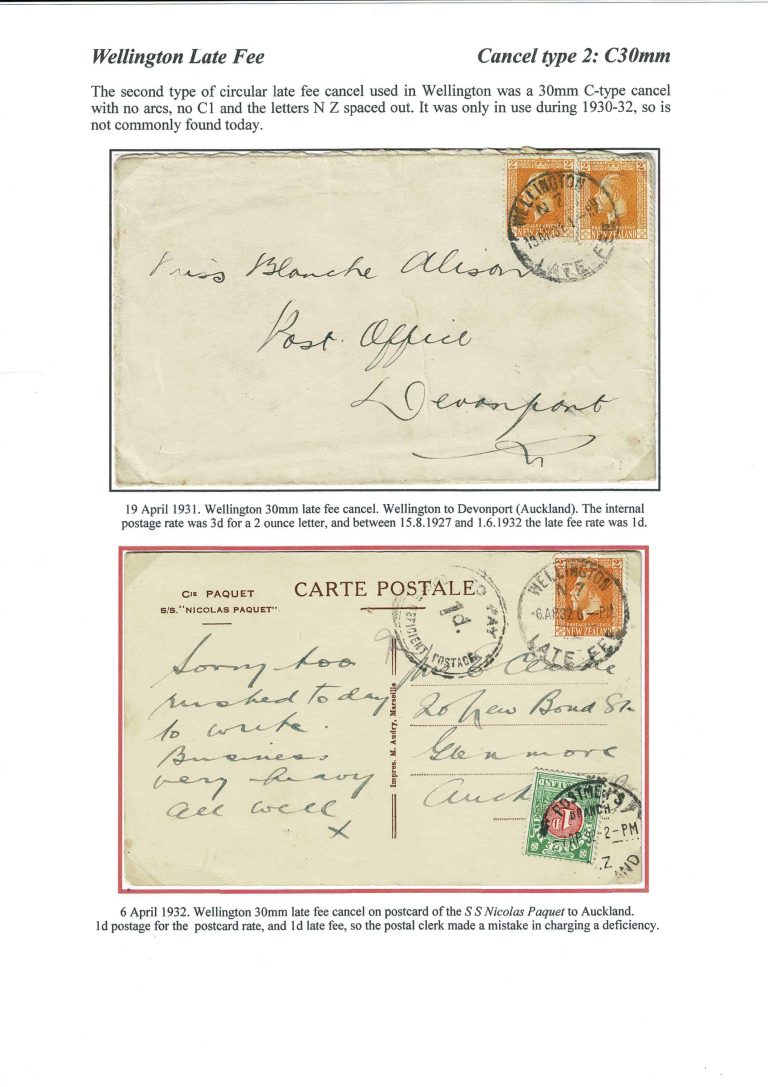 Wellington Late Fee Cancel type 2: C30mm
The second type of circular late fee cancel used in Wellington was a 30mm C-type cancel
with no arcs, no C1 and the letters N Z spaced out. It was only in use during 1930-32, so is
not commonly found today.
WELLINGTON
N Z
19 AP 31
LATE FEE
Miss Blanche Alison
Post Office
Devonport
19 April 1931. Wellington 30mm late fee cancel. Wellington to Devonport (Auckland). The internal
postage rate was 3d for a 2 ounce letter, and between 15.8.1927 and 1.6.1932 the late fee rate was 1d.
Cie PAQUET
S/S. "NICOLAS PAQUET"
CARTE POSTALE
TO PAY
1d.
DEFICIENT POSTAGE
WELLINGTON
N Z
-6 AP 32 6 - PM
LATE FEE
NEW ZEALAND
Sorry too
rushed today
to write.
Business
very heavy
All well
x
Impres. M. Audry, Marseille
20 New Bond St
Glenmore
1D
POSTMEN'S
BRANCH
2-PM
6 April 1932. Wellington 30mm late fee cancel on postcard of the S S Nicolas Paquet to Auckland.
1d postage for the postcard rate, and 1d late fee, so the postal clerk made a mistake in charging a deficiency.